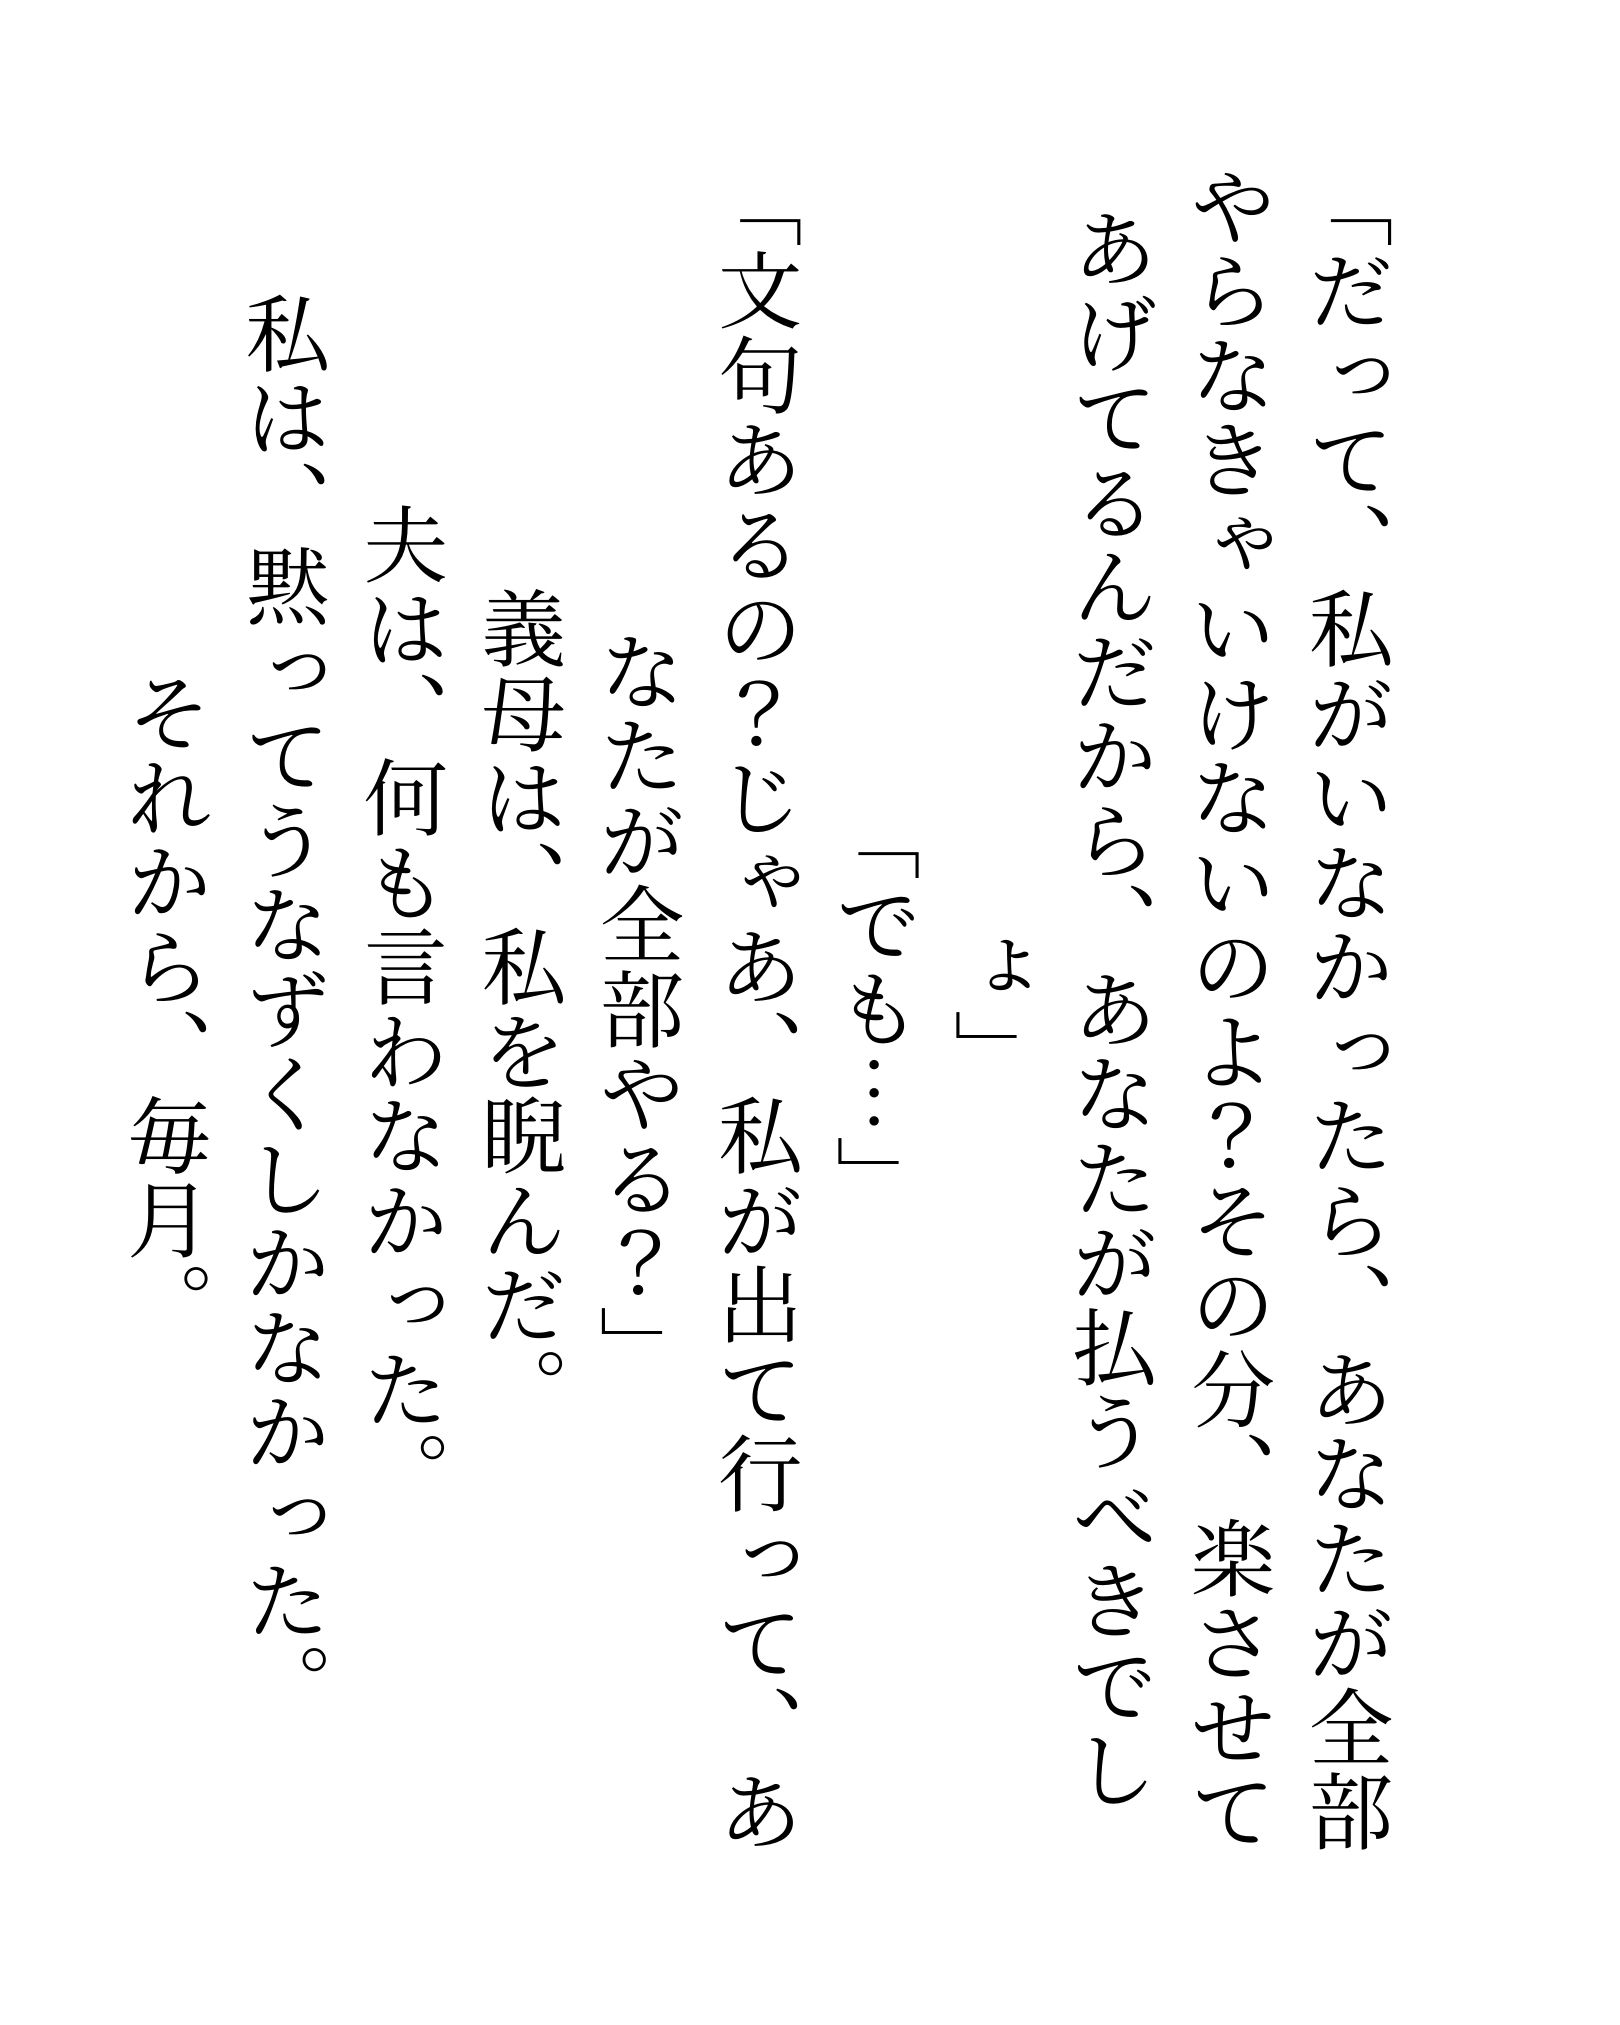 「だって、私がいなかったら、あなたが全部
やらなきゃいけないのよ?その分、楽させて
あげてるんだから、あなたが払うべきでし
ょ」
「でも…」
「文句あるの?じゃあ、私が出て行って、あ
なたが全部やる?」
義母は、私を睨んだ。
夫は、何も言わなかった。
私は、黙ってうなずくしかなかった。
それから、毎月。